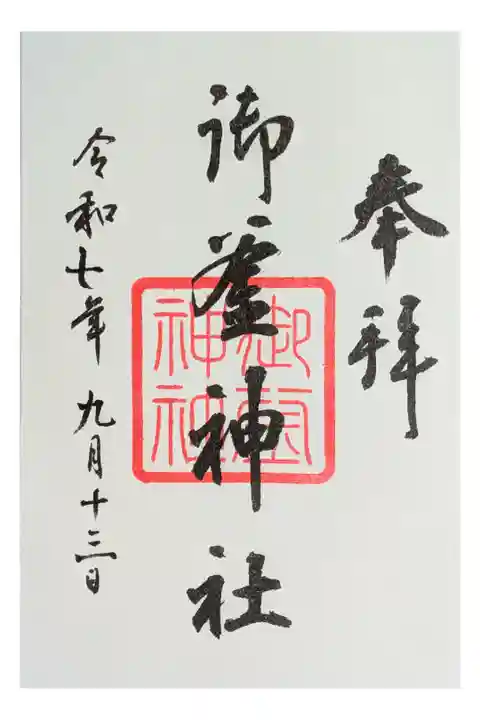 奉拝
御釜神社
御釜
神社
令和七年 九月十三日